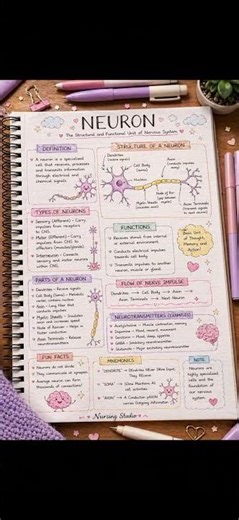 NEURON
The Structural and Functional Unit of Nervous System
DEFINITION
A neuron is a specialized
cell that receives, processes
and transmits information
through electrical and
chemical signals.
STRUCTURE OF A NEURON
Dendrites
Cell Body
(soma)
Axon
Myelin Sheath
Node of
Axon Terminals
TYPES OF NEURONS
Sensory (Afferent) - Carry
impulses from receptors
to CNS.
Motor (Efferent) - Carry
impulses from CNS to
effectors (muscles/glands).
Interneuron - Connects
sensory and motor neurons
within CNS.
FUNCTIONS
Receives stimuli from internal
or external environment.
Conducts electrical impulses
towards cell body.
Transmits impulses to another
neuron, muscle or gland.
Basic Unit
of Thought,
Memory and
Action!
PARTS OF A NEURON
Dendrites - Receive signals
Cell Body (Soma) -
Axon - Long fiber that
conducts impulses
Myelin Sheath -
and increases speed
Node of Ranvier - Helps in
faster conduction
Axon Terminals - Release
neurotransmitters
FLOW OF NERVE IMPULSE
Dendrites → Cell Body → Axon →
Axon Terminals → Next Neuron
NEUROTRANSMITTERS (EXAMPLES)
Acetylcholine - Muscle contraction, memory
Dopamine - Mood, reward, movement
Serotonin - Mood, sleep, appetite
GABA - Inhibitory neurotransmitter
Glutamate - Major excitatory neurotransmitter
FUN FACTS
Neurons do not divide.
They communicate at synapses.
Average neuron can form
thousands of connections!
MNEMONICS
"DENDRITE"
"SOMA"
"AXON"
NOTE
Neurons are
highly specialized
cells and the
foundation of
our nervous
system.
Nursing Studies